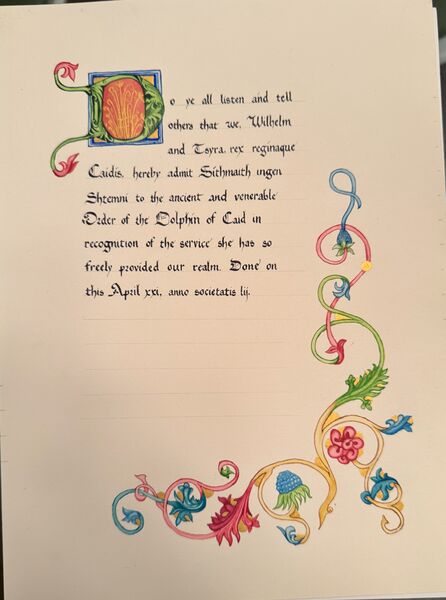 Do ye all listen and tell
others that we, Wilhelm
and Tsyra, rex reginaque
Caidis, hereby admit Sithmaith ingen
Shemni to the ancient and venerable
Order of the Dolphin of Caid in
recognition of the service she has so
freely provided our realm. Done on
this April xxi, anno societatis lij.